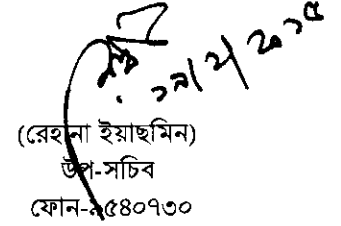 ১৭/২/২০১৫
(রেহানা ইয়াছমিন)
উপ-সচিব
ফোন-৯৫৪০৭৩০